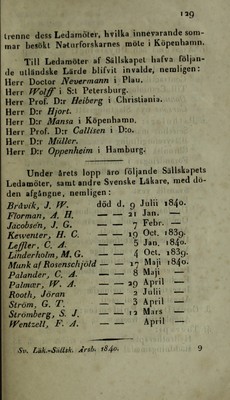 129
trenne dess Ledamöter, hvilka innevarande som-
mar besökt Naturforskarnes möte i Köpenhamn.
Till Ledamöter af Sällskapet hafva följan-
de utländske Lärde blifvit invalde, nemligen:
Herr Doctor Nevermann i Plau.
Herr Wolff i S:t Petersburg.
Herr Prof. D:r Heiberg i Christiania.
Herr D:r Hjort.
Herr D:r Mansa i Köpenhamn.
Herr Prof. D:r Callisen i D:o.
Herr D:r Müller.
Herr D:r Oppenheim i Hamburg.
Under årets lopp äro följande Sällskapets
Ledamöter, samt andre Svenske Läkare, med dö-
den afgångne, nemligen:
Bråvik, J. W. död d. 9 Julii 1840.
Florman, A. H. — — 21 Jan. —
Jacobsén, J. G. — — 7 Febr. —
Kewenter, H. C. — — 19 Oct. 1839.
Leffler, C. A. — — 5 Jan. 1840.
Linderholm, M. G. — — 4 Oct. 1839.
Munk af Rosenschjöld — — 17 Maji 1840.
Palander, C. A. — — 8 Maji —
Palmær, W. A. — — 29 April —
Rooth, Jöran — — 2 Julii —
Ström, G. T. — — 3 April —
Strömberg, S. J. — — 12 Mars —
Wentzell, F. A. — — April —
Sv. Läk.-Sällsk. Årsb. 1840. 9